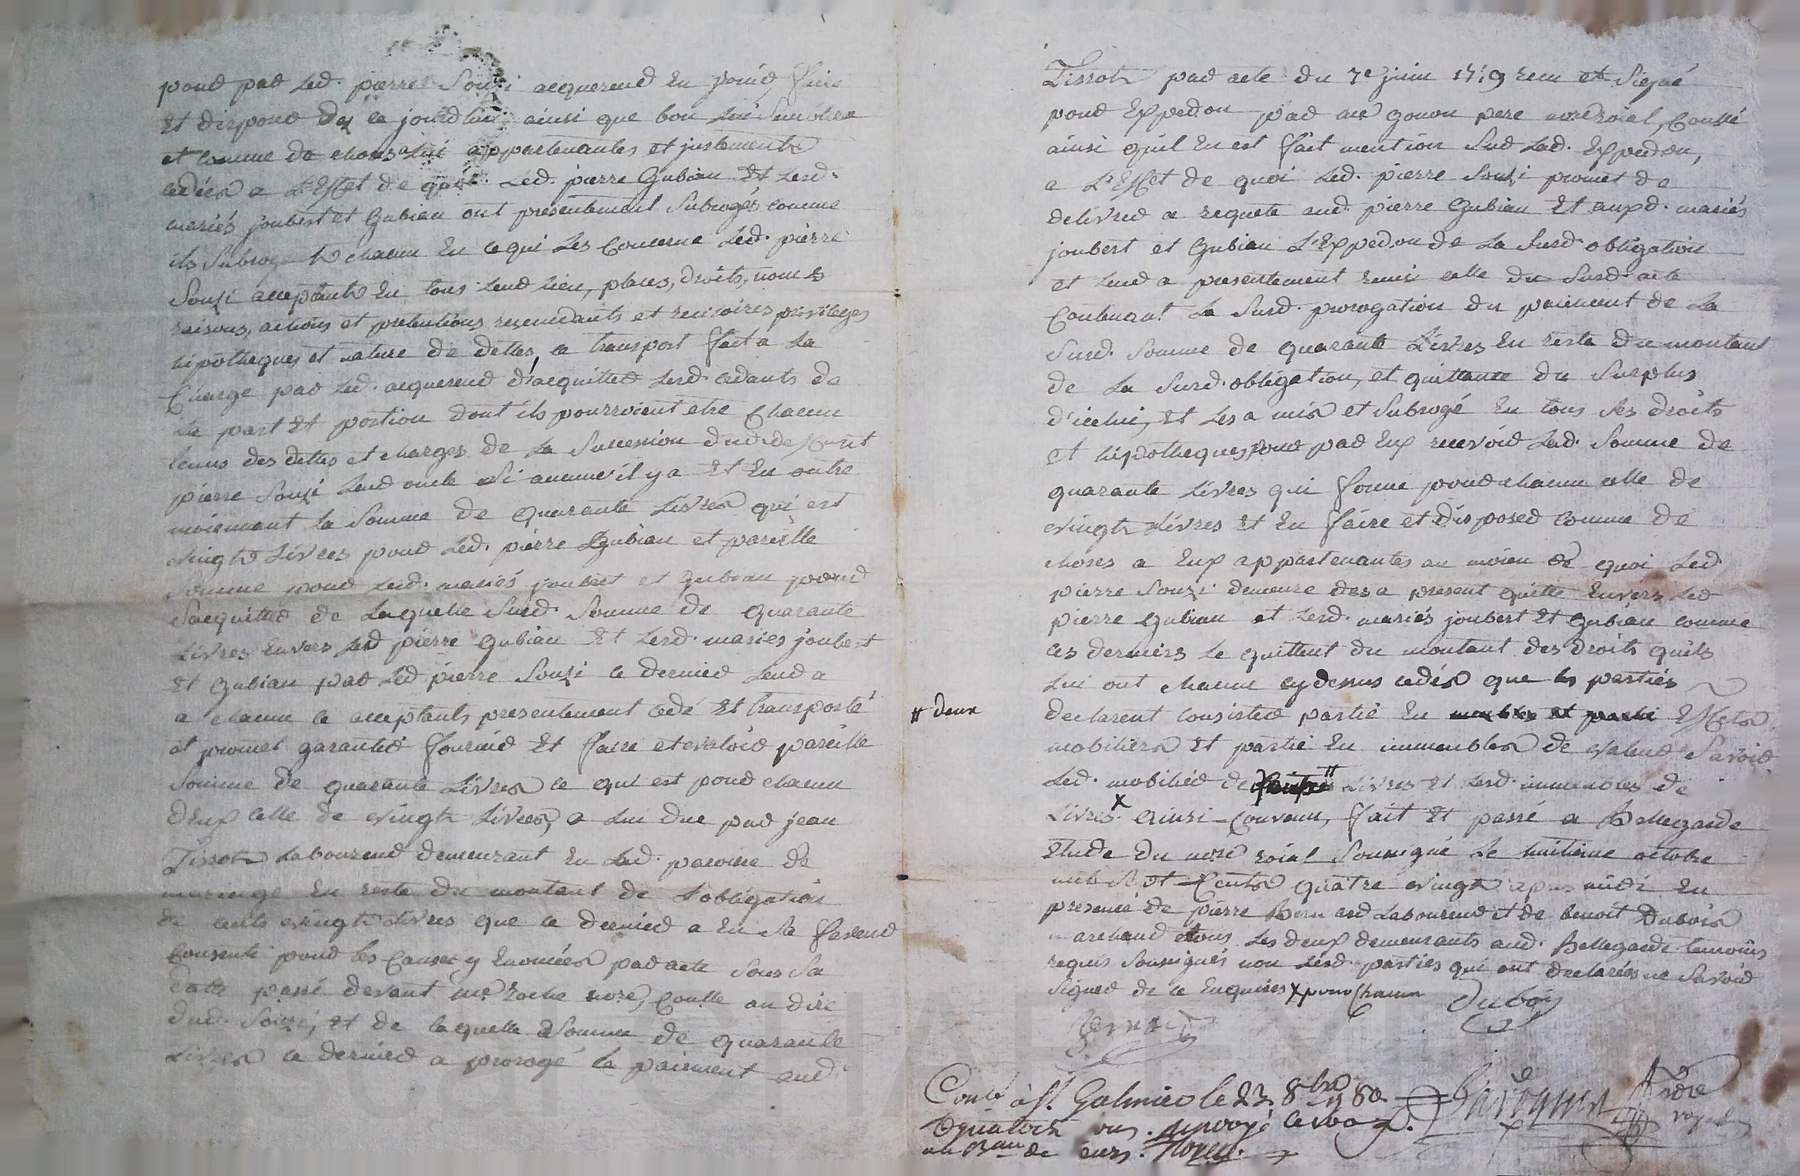 pour par led. pierre Souzi acquereur en jouir faire
et disposer des ce jourd'hui ainsi que bon lui semblera
et comme de choses a lui appartenantes et justement
cedées a l'effet de quoi led. pierre Gubian et lesd.
mariés joubert et Gubian ont presentement subrogés comme
ils subrogent chacun en ce qui les concerne led. pierre
Souzi acceptant en tous leur lieu, places, droits, noms
raisons, actions et pretentions rescindants et rescisoires privileges
hipotheques et nature de dettes, ce transport fait a la
Charge par led. acquereur d'acquitter lesd. cedants de
la part et portion dont ils pourroient etre chacun
tenus des dettes et charges de la succession dud. defunt
pierre Souzi leur oncle si aucune il y a et en outre
moiennant la somme de quarante livres qui est
vingt livres pour led. pierre Gubian et pareille
somme pour lesd. mariés joubert et Gubian pour
s'acquitter de laquelle susd. somme de quarante
livres envers led pierre Gubian et lesd. mariés joubert
et Gubian par led pierre Souzi ce dernier leur a
a chacun ce acceptants presentement cedé et transporté
et promet garantir fournir et faire et valoir pareille
somme de quarante livres ce qui est pour chacun
deux celle de vingt livres, a lui due par jean
Tissot laboureur demeurant en lad. paroisse de
maringe en reste du montant de l'obligation
de cents vingt livres que ce dernier a en sa faveur
consenti pour les causes y enoncées par acte sous sa
datte passé devant me roche nore, Conllé au dire
dud. Souzi, et de laquelle somme de quarante
livres ce dernier a prorogé le paiement aud.
Tissot par acte du 7e juin 1779 recu et signé
pour expedon par me gonon pere nore roial, Conllé
ainsi qu'il en est fait mention sur lad. expedon,
a l'effet de quoi led. pierre Souzi promet de
delivrer a requete aud. pierre Gubian et auxd. mariés
joubert et Gubian l'expedon de la susd. obligation
et leur a presentement remi celle du susd. acte
Contenant la susd. prorogation du paiement de la
susd. somme de quarante livres en reste du montant
de la susd. obligation, et quittance du surplus
d'icelui, et les a mis et subrogé en tous ses droits
et hipotheques pour par eux recevoir lad. somme de
quarante livres qui forme pour chacun celle de
vingt livres et en faire et disposer comme de
choses a eux appartenantes au moien de quoi led.
pierre Souzi demeure des a present quitte envers led
pierre Gubian et lesd. mariés joubert et Gubian comme
ces derniers le quittent du montant des droits qu'ils
lui ont chacun cy dessus cedés que les parties
# deux
declarent consister partie en meubles et partie effets
mobiliers et partie en immeubles de valeur savoir
led. mobilier de # livres et lesd. immeubles de
livres x ainsi convenu, fait et passé a Bellegarde
étude du nore roial soussigné le huitieme octobre
mil sept cents quatre vingt apres midi en
presence de pierre laboureur et de benoit Dubois
marchand tous les deux demeurants aud. Bellegarde temoins
requis soussignés non lesd. parties qui ont declarées ne savoir
signer de ce enquises x pour chacun Duboy
Conlé à St. Galmier le 23. 8bre 1780